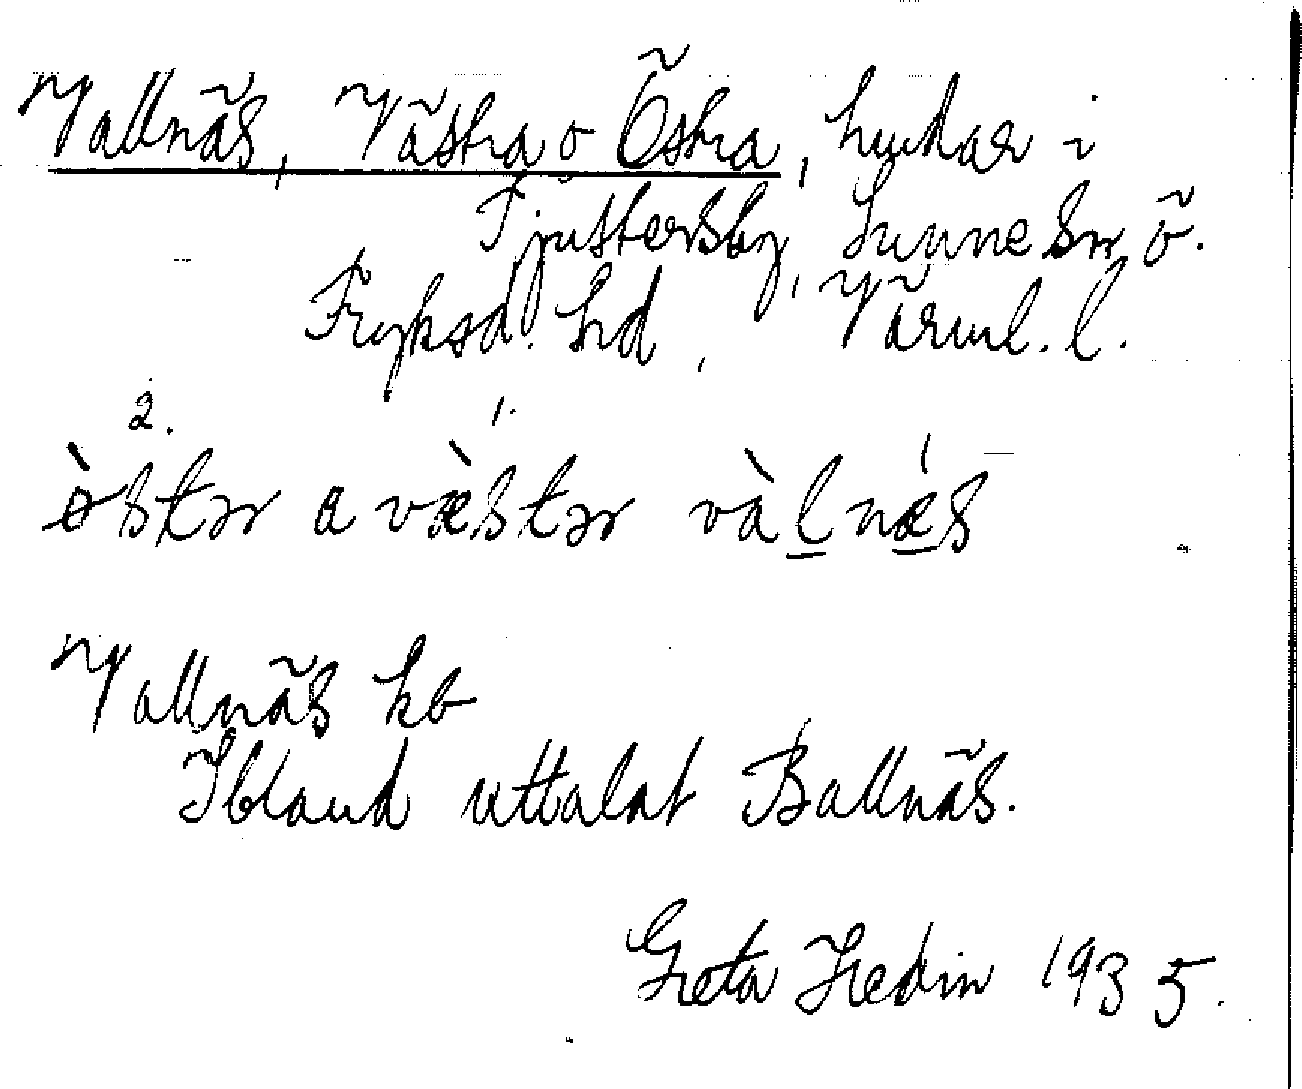 Vallnäs, Västra o Östra, hudar i
Fjuttersby, Sunne sn ö.
Fryksd. hd, Värml. l.
2. 1.
ø̀stər a væ̀stər vàl̲nǽ̲s
Vallnäs kb
Ibland uttalat Ballnäs.
Greta Hedin 1935.